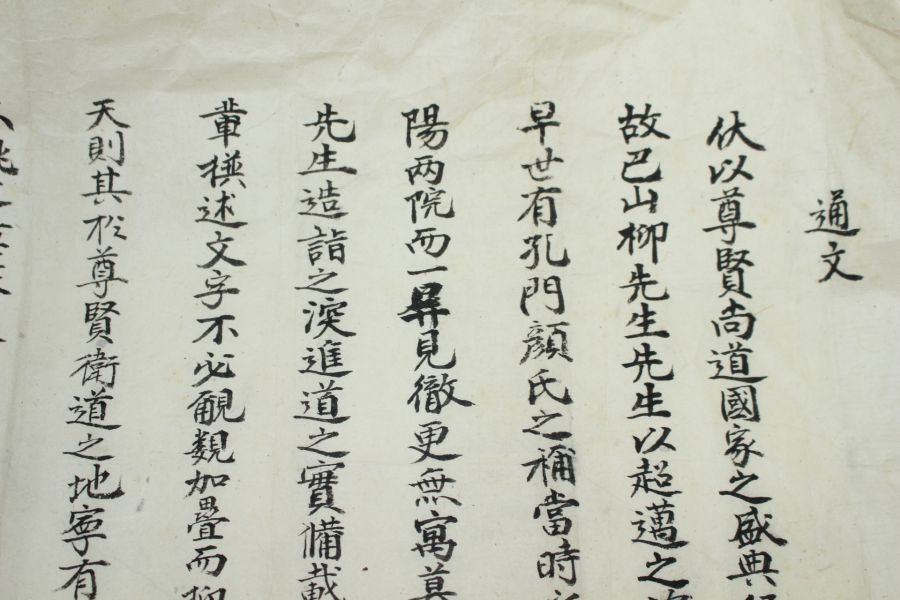 通文
伏以尊賢尚道國家之盛典
故巴山柳先生先生以超邁之
早世有孔門顔氏之稱當時
陽兩院而一見徹更無寓慕
先生造詣之深進道之實備載
輩撰述文字不必覼覼加疊而
天則其於尊賢衛道之地寧有